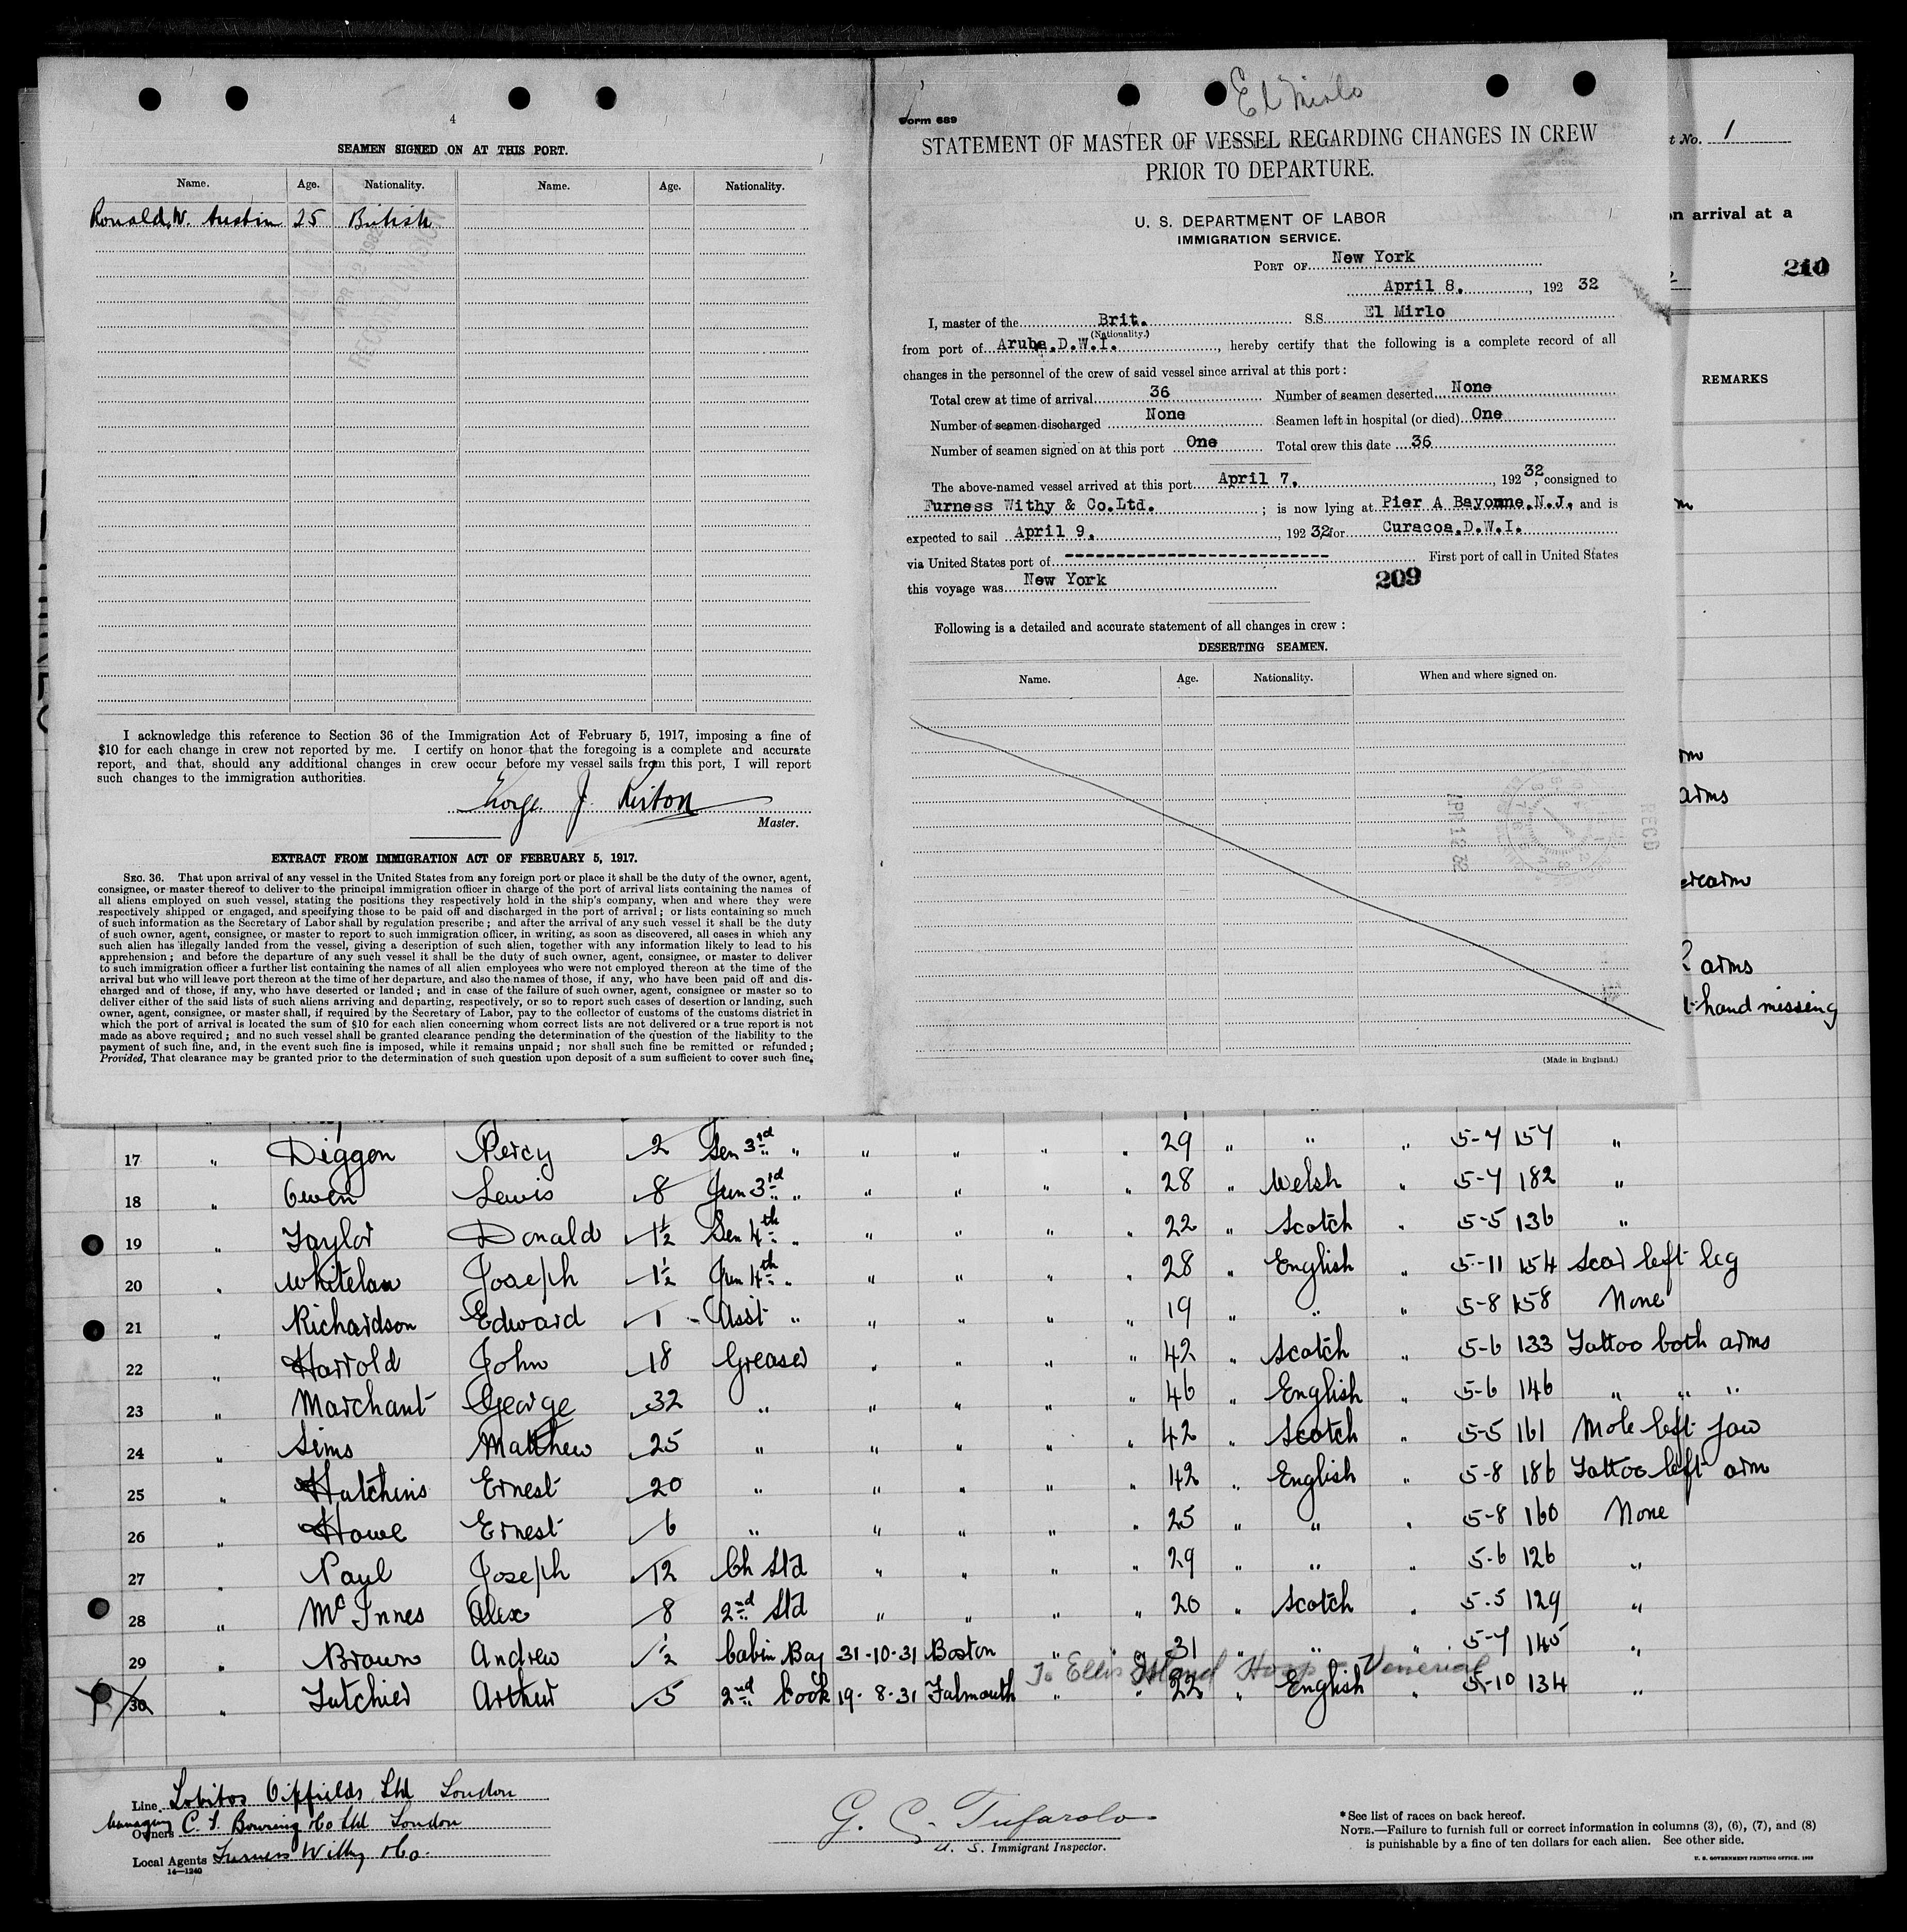 4
SEAMEN SIGNED ON AT THIS PORT.
Name. Age. Nationality. Name. Age. Nationality.
Ronald W. Austin 25 British
I acknowledge this reference to Section 36 of the Immigration Act of February 5, 1917, imposing a fine of
$10 for each change in crew not reported by me. I certify on honor that the foregoing is a complete and accurate
report, and that, should any additional changes in crew occur before my vessel sails from this port, I will report
such changes to the immigration authorities.
George J. Kirton
Master.
EXTRACT FROM IMMIGRATION ACT OF FEBRUARY 5, 1917.
SEC. 36. That upon arrival of any vessel in the United States from any foreign port or place it shall be the duty of the owner, agent,
consignee, or master thereof to deliver to the principal immigration officer in charge of the port of arrival lists containing the names of
all aliens employed on such vessel, stating the positions they respectively hold in the ship's company, when and where they were
respectively shipped or engaged, and specifying those to be paid off and discharged in the port of arrival; or lists containing so much
of such information as the Secretary of Labor shall by regulation prescribe; and after the arrival of any such vessel it shall be the duty
of such owner, agent, consignee, or master to report to such immigration officer, in writing, as soon as discovered, all cases in which any
such alien has illegally landed from the vessel, giving a description of such alien, together with any information likely to lead to his
apprehension; and before the departure of any such vessel it shall be the duty of such owner, agent, consignee, or master to deliver
to such immigration officer a further list containing the names of all alien employees who were not employed thereon at the time of the
arrival but who will leave port thereon at the time of her departure, and also the names of those, if any, who have been paid off and dis-
charged and of those, if any, who have deserted or landed; and in case of the failure of such owner, agent, consignee or master so to
deliver either of the said lists of such aliens arriving and departing, respectively, or so to report such cases of desertion or landing, such
owner, agent, consignee, or master shall, if required by the Secretary of Labor, pay to the collector of customs of the customs district in
which the port of arrival is located the sum of $10 for each alien concerning whom correct lists are not delivered or a true report is not
made as above required; and no such vessel shall be granted clearance pending the determination of the question of the liability to the
payment of such fine, and, in the event such fine is imposed, while it remains unpaid; nor shall such fine be remitted or refunded;
Provided, That clearance may be granted prior to the determination of such question upon deposit of a sum sufficient to cover such fine.
El Mirlo
Form 689
STATEMENT OF MASTER OF VESSEL REGARDING CHANGES IN CREW
PRIOR TO DEPARTURE.
U. S. DEPARTMENT OF LABOR
IMMIGRATION SERVICE.
PORT OF New York
April 8. , 192 32
I, master of the Brit. S.S. El Mirlo
(Nationality.)
from port of Aruba,D.W.I. , hereby certify that the following is a complete record of all
changes in the personnel of the crew of said vessel since arrival at this port:
Total crew at time of arrival 36 Number of seamen deserted None
Number of seamen discharged None Seamen left in hospital (or died) One
Number of seamen signed on at this port One Total crew this date 36
The above-named vessel arrived at this port April 7. , 192 32, consigned to
Furness Withy & Co.Ltd. ; is now lying at Pier A Bayonne,N.J, and is
expected to sail April 9. , 192 32, for Curacoa,D.W.I.
via United States port of ---------------- First port of call in United States
this voyage was New York
209
Following is a detailed and accurate statement of all changes in crew:
DESERTING SEAMEN.
Name. Age. Nationality. When and where signed on.
REC'D
(Made in England.)
t No. 1
n arrival at a
210
REMARKS
arms
arms
hand missing
17 " Diggon Percy 2 Sen 3rd " " " " " 29 " " " 5-7 157 "
18 " Owen Lewis 8 Jun 3rd " " " " " 28 " Welsh " 5-7 182 "
19 " Taylor Donald 1½ Sen 4th " " " " " 22 " Scotch " 5-5 136 "
20 " Whitelaw Joseph 1½ Jun 4th " " " " " 28 " English " 5-11 154 Scar left leg
21 " Richardson Edward 1 Asst " " " " " 19 " " " 5-8 158 None
22 " Harrold John 18 Greaser " " " " 42 " Scotch " 5-6 133 Tattoo both arms
23 " Marchant George 32 " " " " " 46 " English " 5-6 146 " " "
24 " Sims Matthew 25 " " " " " 42 " Scotch " 5-5 161 Mole left jaw
25 " Hutchins Ernest 20 " " " " " 42 " English " 5-8 186 Tattoo left arm
26 " Howe Ernest 6 " " " " " 25 " " " 5-8 160 None
27 " Paul Joseph 12 Ch Std " " " " 29 " " " 5-6 126 "
28 " McInnes Alex 8 2nd Std " " " " 20 " Scotch " 5-5 129 "
29 " Brown Andrew ½ Cabin Boy 31-10-31 Boston " " 31 " " " 5-7 145 "
To Ellis Island Hosp - Venerial
30 " Tutchier Arthur 5 2nd Cook 19-8-31 Falmouth " " 22 " English " 5-10 134 "
Line Lobitos Oilfields Ltd London
Managing Owners C. T. Bowring & Co Ltd London
Local Agents Furness Withy & Co.
14—1240
G. C. Tufarolo
U. S. Immigrant Inspector.
* See list of races on back hereof.
NOTE.—Failure to furnish full or correct information in columns (3), (6), (7), and (8)
is punishable by a fine of ten dollars for each alien. See other side.
U. S. GOVERNMENT PRINTING OFFICE